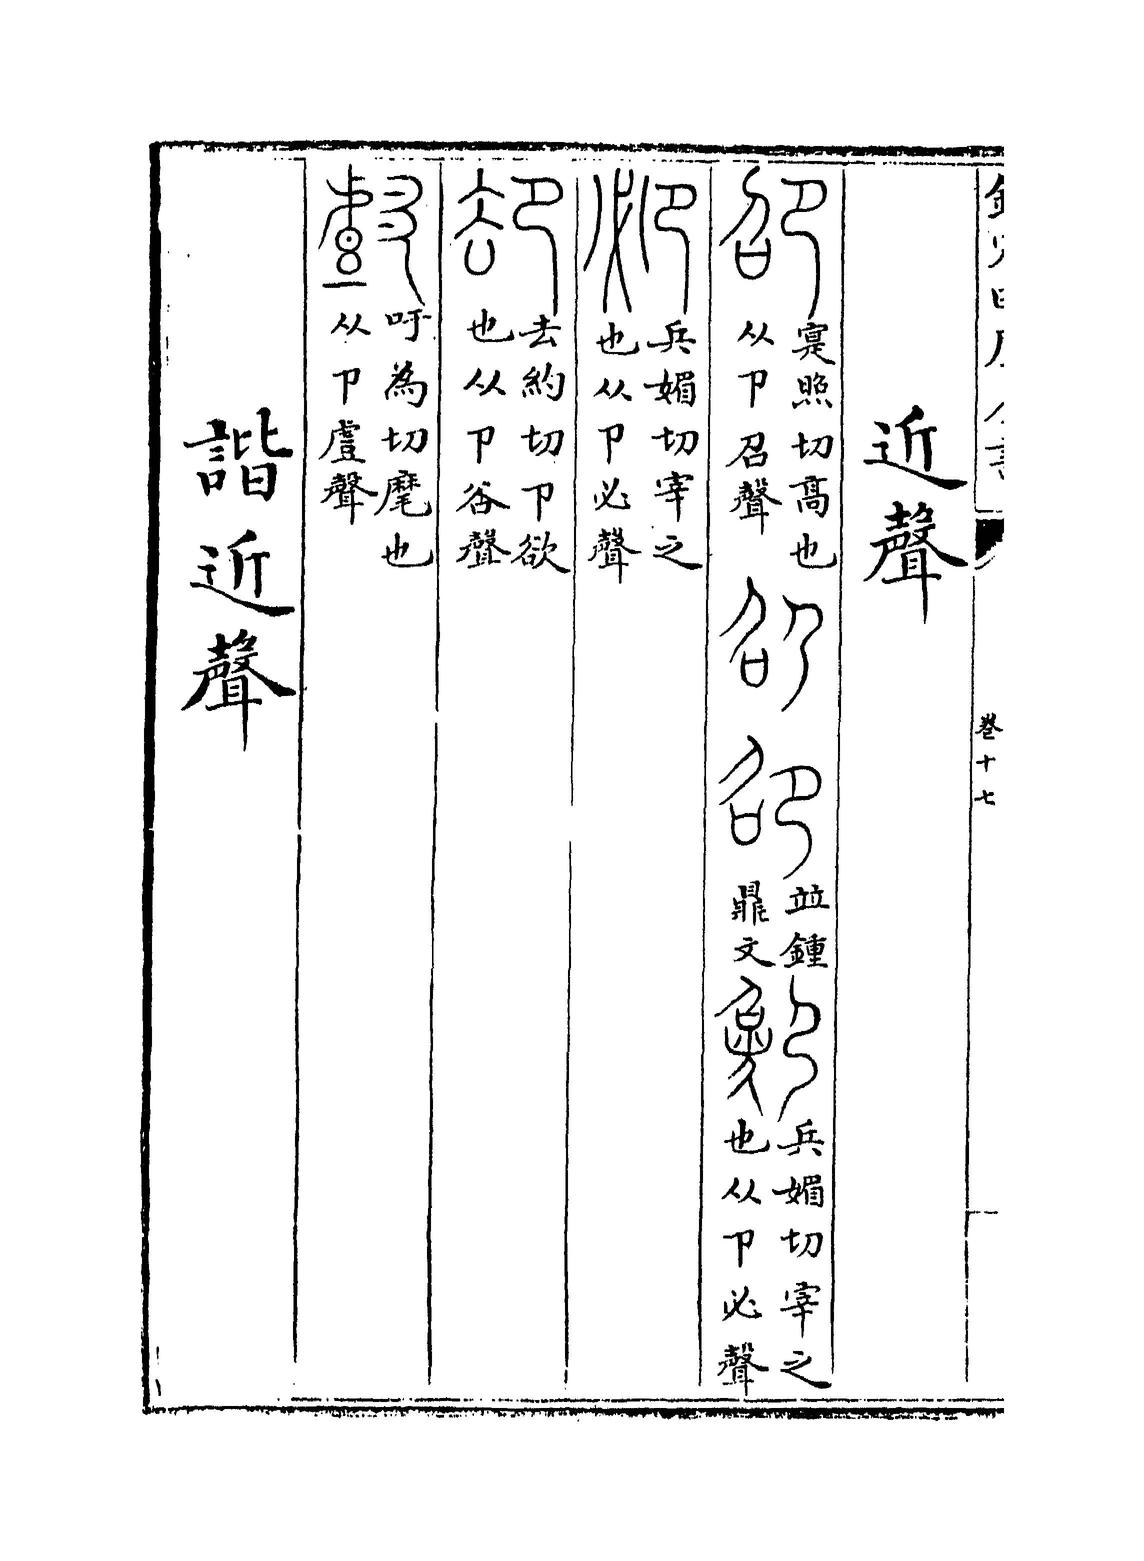 欽定四庫全書
卷十七
近聲
卲寔照切高也从卪召聲卲卲並鍾鼎文兵媚切宰之也从卪必聲
兵媚切宰之也从卪必聲
卻去約切卪欲也从卪谷聲
吁為切麾也从卪聲
諧近聲